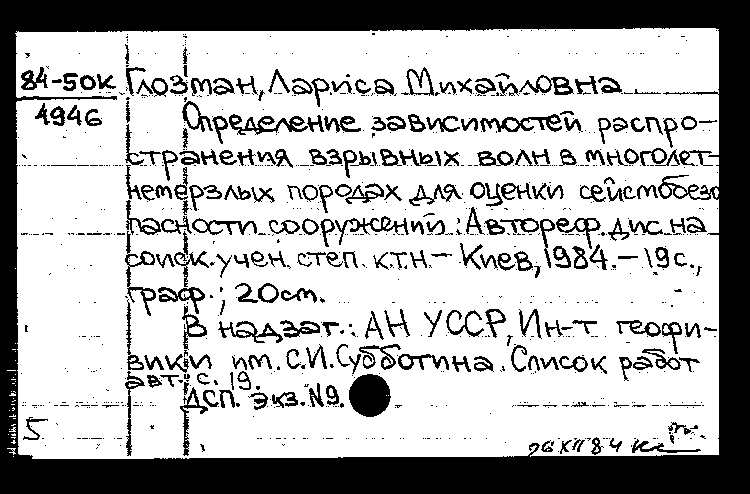 84-50к Глозман, Лариса Михайловна
4946 Определение зависимостей распро-
странения взрывных волн в многолет-
немерзлых породах для оценки сейсмобезо
пасности сооружений : Автореф. дис. на
соиск. учен. степ. к.т.н. – Киев, 1984. – 19 с.,
граф. ; 20 см.
В надзаг.: АН УССР, Ин-т геофи-
зики им. С.И. Субботина. Список работ
авт.: с. 19.
ДСП. Экз. №9.
5
26 XII 84